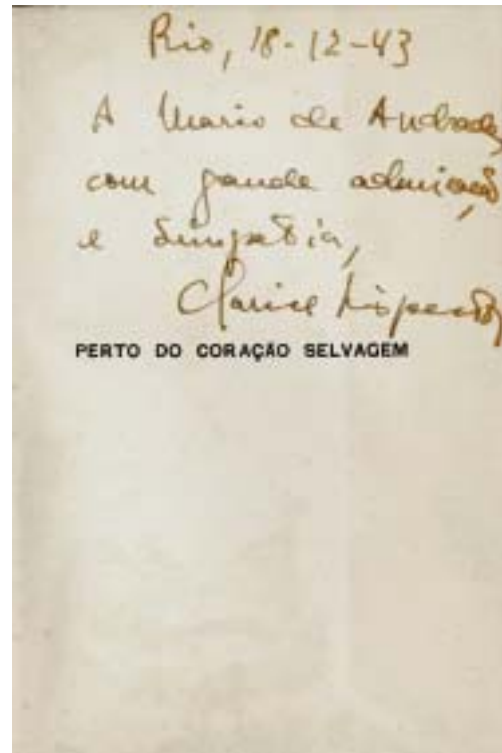 Rio, 18-12-43
A Mario de Andrade,
com grande admiração
e simpatia,
Clarice Lispector
PERTO DO CORAÇÃO SELVAGEM